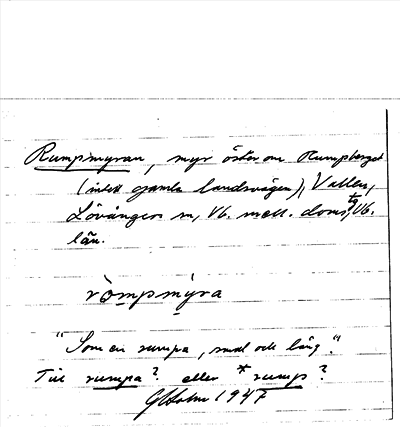 Rumpmyran, myr öster om Rumpberget
(intill gamla landsvägen), Vallen,
Lövångers sn, Vb. mell. doms. tg, Vb.
län.
ròmpmýra
"Som en rumpa, smal och lång."
Till rumpa? eller *rump?
GHolm 1947